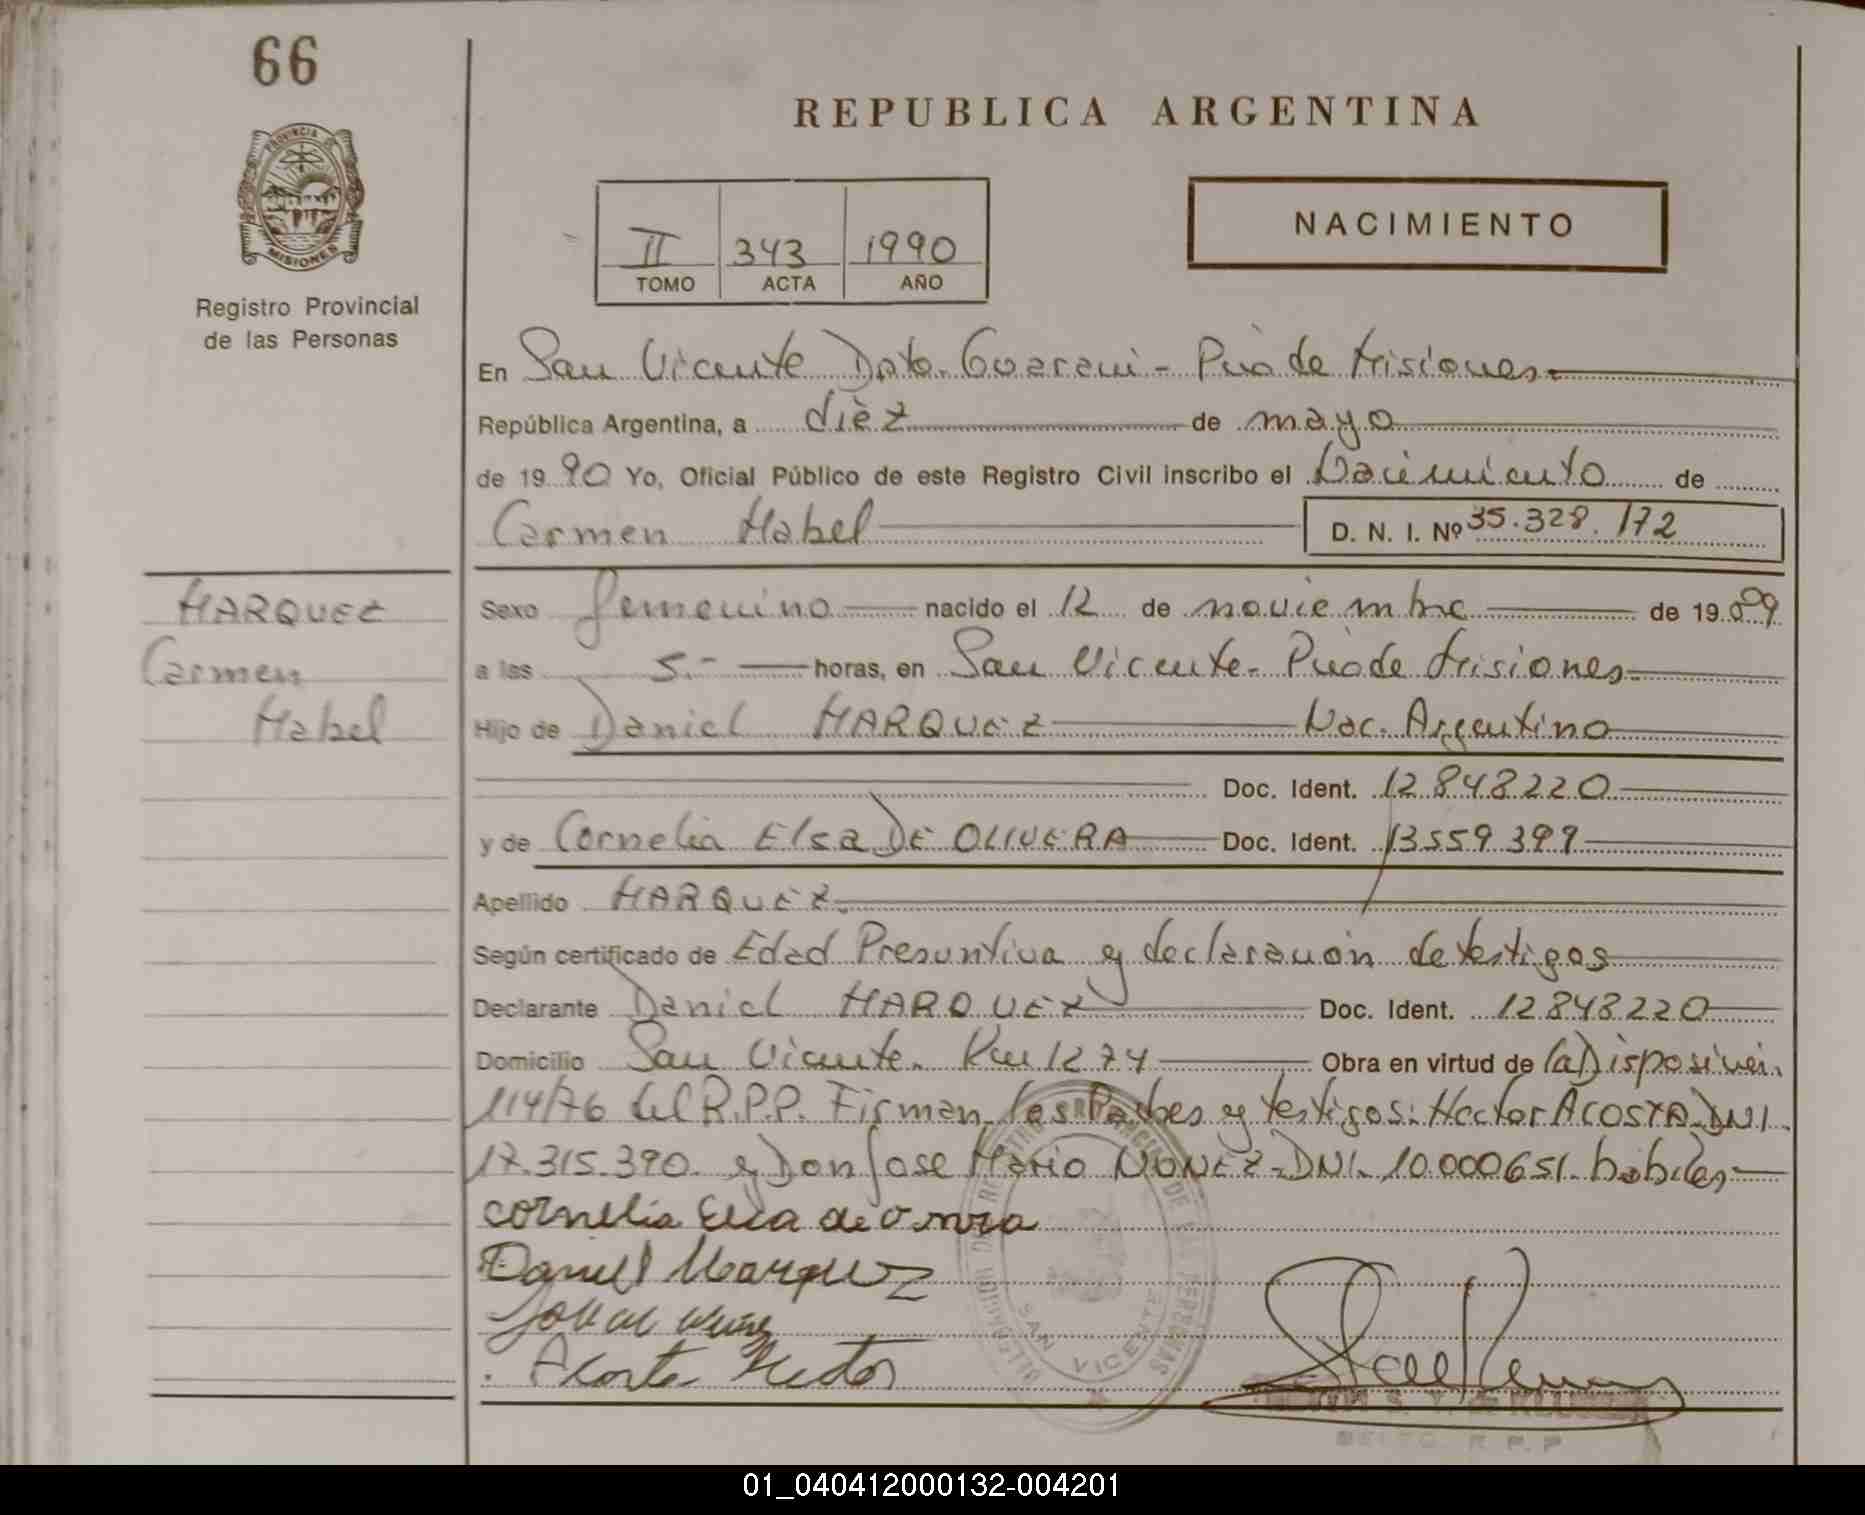 66
REPUBLICA ARGENTINA
PROVINCIA DE
MISIONES
Registro Provincial
de las Personas
II 343 1990
TOMO ACTA AÑO
NACIMIENTO
En San Vicente Dpto. Guarani - Pcia de Misiones.
República Argentina, a diez de mayo
de 1990 Yo, Oficial Público de este Registro Civil inscribo el Nacimiento de
Carmen Mabel D. N. I. Nº 35.328.172
MARQUEZ
Carmen
Mabel
Sexo femenino nacido el 12 de noviembre de 1989
a las 5.- horas, en San Vicente- Pciade Misiones.
Hijo de Daniel MARQUEZ Nac. Argentino
Doc. Ident. 12848220
y de Cornelia Elsa DE OLIVERA Doc. Ident. 13559399
Apellido MARQUEZ.
Según certificado de Edad Presuntiva y declaracion de testigos
Declarante Daniel MARQUEZ Doc. Ident. 12848220
Domicilio San Vicente. Km 1274 Obra en virtud de (a)
114/76 del R.P.P. Firman los Padres y testigos: Hector ACOSTA DNI.
17.315.390. y Don Jose Mario NUÑEZ-DNI. 10.000651. habiles
cornelia Elsa de
Daniel Marquez
Acosta Hector
DELEGACION DE LAS PERSONAS
SAN VICENTE
R. P. P.
01_040412000132-004201